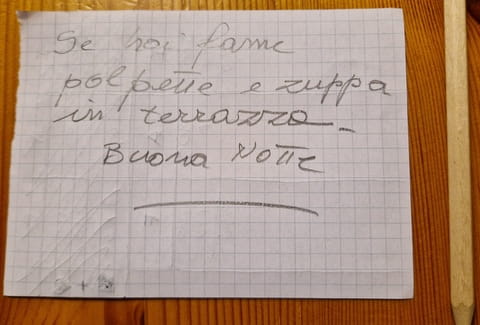 Se hai fame
polpette e zuppa
in terrazza
Buona Notte